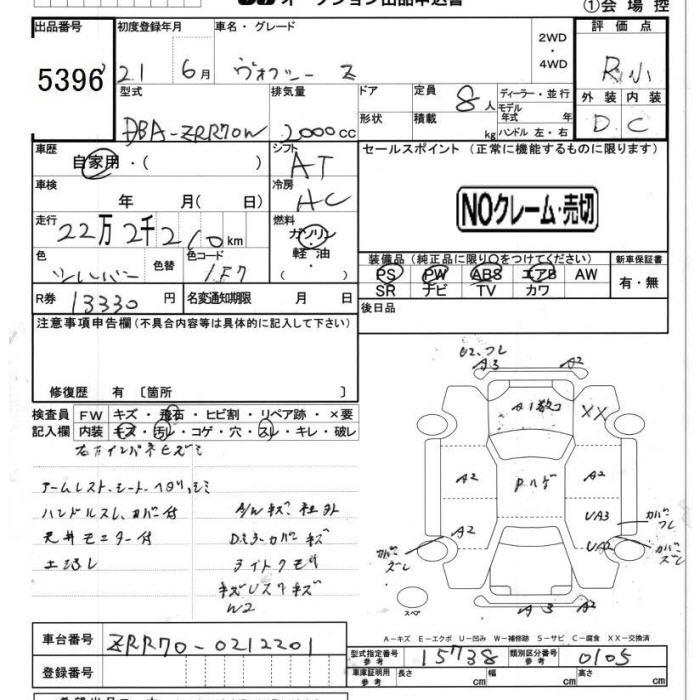 オークション出品申込書 ①会場控
出品番号 初度登録年月 車名・グレード 2WD・4WD 評価点
5396 21 6月 ヴォクシー Z R小
型式 排気量 ドア 定員 8人 ディーラー・並行 外装 内装
DBA-ZRR70W 2,000cc 形状 積載 kg モデル年式 年 ハンドル 左・右 D C
車歴 自家用・( ) シフト AT セールスポイント (正常に機能するものに限ります)
車検 年 月(日) 冷房 AC
NOクレーム・売切
走行 22万2千2 0km 燃料 ガソリン・軽油・
色 シルバー 色替 色コード 1F7
装備品(純正品に限り○をつけてください) 新車保証書
PS PW ABS エアB AW 有・無
SR ナビ TV カワ
R券 13330円 名変通知期限 月 日 後日品
注意事項申告欄(不具合内容等は具体的に記入して下さい)
修復歴 有〔箇所 〕
検査員 FW キズ・飛石・ヒビ割・リペア跡・×要
記入欄 内装 キズ・汚レ・コゲ・穴・スレ・キレ・破レ
右カインパネヒズミ
アームレスト、シート、ヘタリ、シミ
ハンドルスレ、カバー付 A/Wキズ、社外
天井モニター付 Dミラーカバーキズ
土汚レ ライトクモリ
キズUスリキズ
W2
G2.フレ
A3 A2
A1数コ XX
A2 Pハゲ A2
UA3 カバーフレ
A2 UA2
カバーズレ カバーズレ
スペア A3 A2
A-キズ E-エクボ U-凹み W-補修跡 S-サビ C-腐食 XX-交換済
車台番号 ZRR70-0212201
型式指定番号 参考 15738 類別区分番号 参考 0105
登録番号 車庫証明用 参考 長さ cm 幅 cm 高さ cm